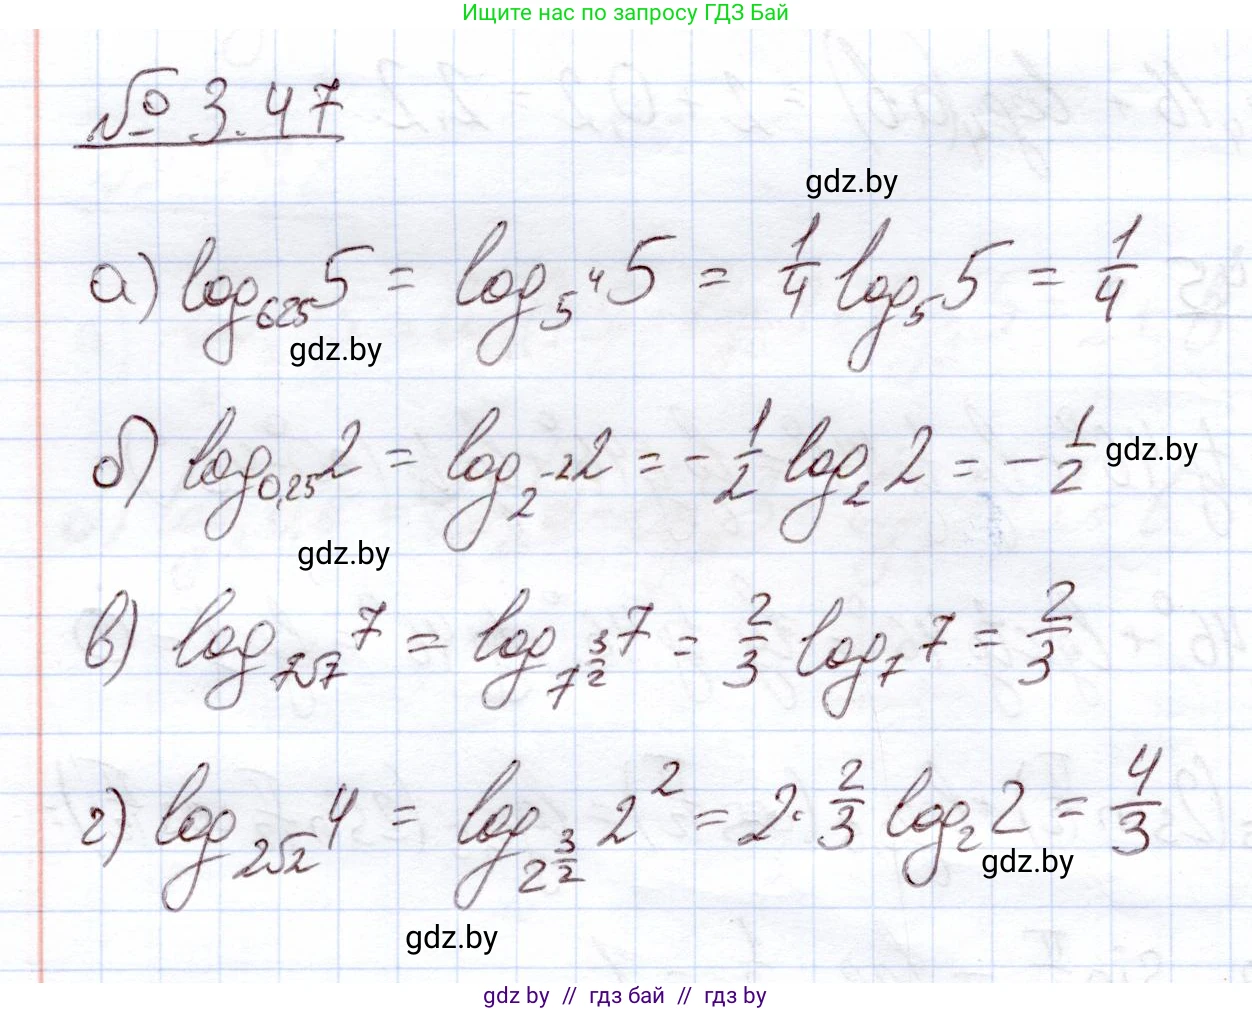 Ищите нас по запросу ГДЗ Бай
№ 3.47
gdz.by
а) log₆₂₅ 5 = log_{5^4} 5 = 1/4 log₅ 5 = 1/4
gdz.by
б) log_{0,25} 2 = log_{2^{-2}} 2 = - 1/2 log₂ 2 = - 1/2 gdz.by
gdz.by
в) log_{7√7} 7 = log_{7^{3/2}} 7 = 2/3 log₇ 7 = 2/3
г) log_{2√2} 4 = log_{2^{3/2}} 2² = 2 · 2/3 log₂ 2 = 4/3
gdz.by
gdz.by
gdz by // гдз бай // гдз by